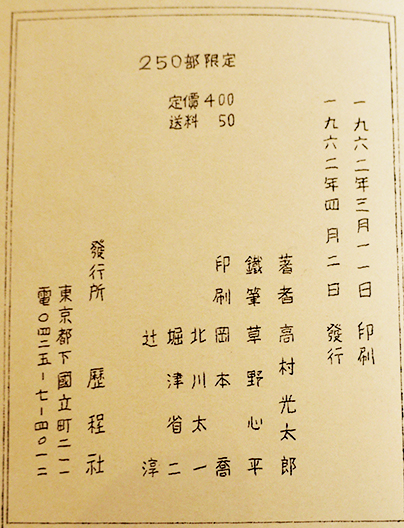 250部限定
定價400
送料 50
一九六二年三月一一日 印刷
一九六二年四月二日 發行
著者 高村光太郎
鐵筆 草野心平
印刷 岡本 喬
北川太一
堀津省二
辻 淳
發行所 歷程社
東京都下國立町二一一
電〇四二五ー七ー四〇一二